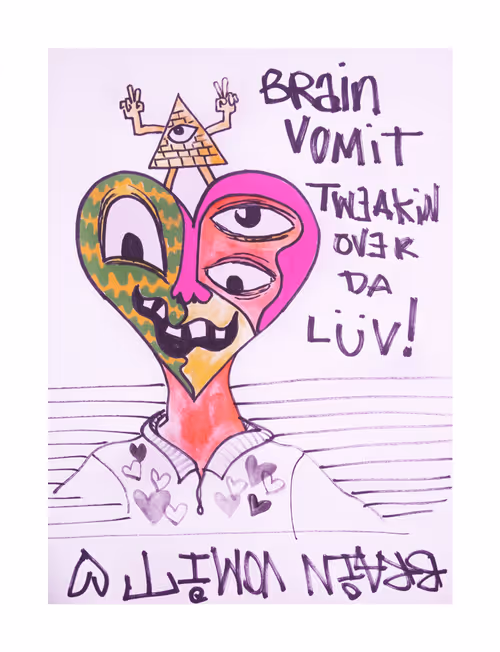 BRain
VOMiT
TWEAKiN
OVER
DA
LÜV!
BRAIN VOMIT